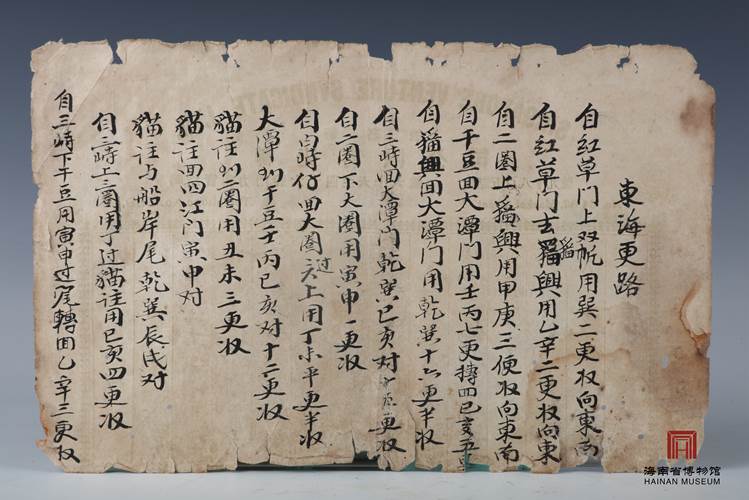 東海更路
自红草门上双帆用巽二更收向東南
自红草门去猫興用乙辛二更收向東
自二圈上猫興用甲庚三便收向東南
自干豆回大潭门用壬丙七更轉四巳亥五
自猫興回大潭门用乾巽十六更半收
自三峙回大潭门乾巽巳亥对十五更收
自二圈下大圈用寅申一更收
自白峙仔回大圈过上用丁未平更半收
大潭刈干豆壬丙巳亥对十二更收
猫註刈二圈用丑未三更收
猫註回四江门寅申对
猫註与船岸尾乾巽辰戌对
自三峙上三圈用丁过猫註用巳亥四更收
自三峙下干豆用寅申过尾轉回乙辛三更收
海南省博物馆
HAINAN MUSEUM